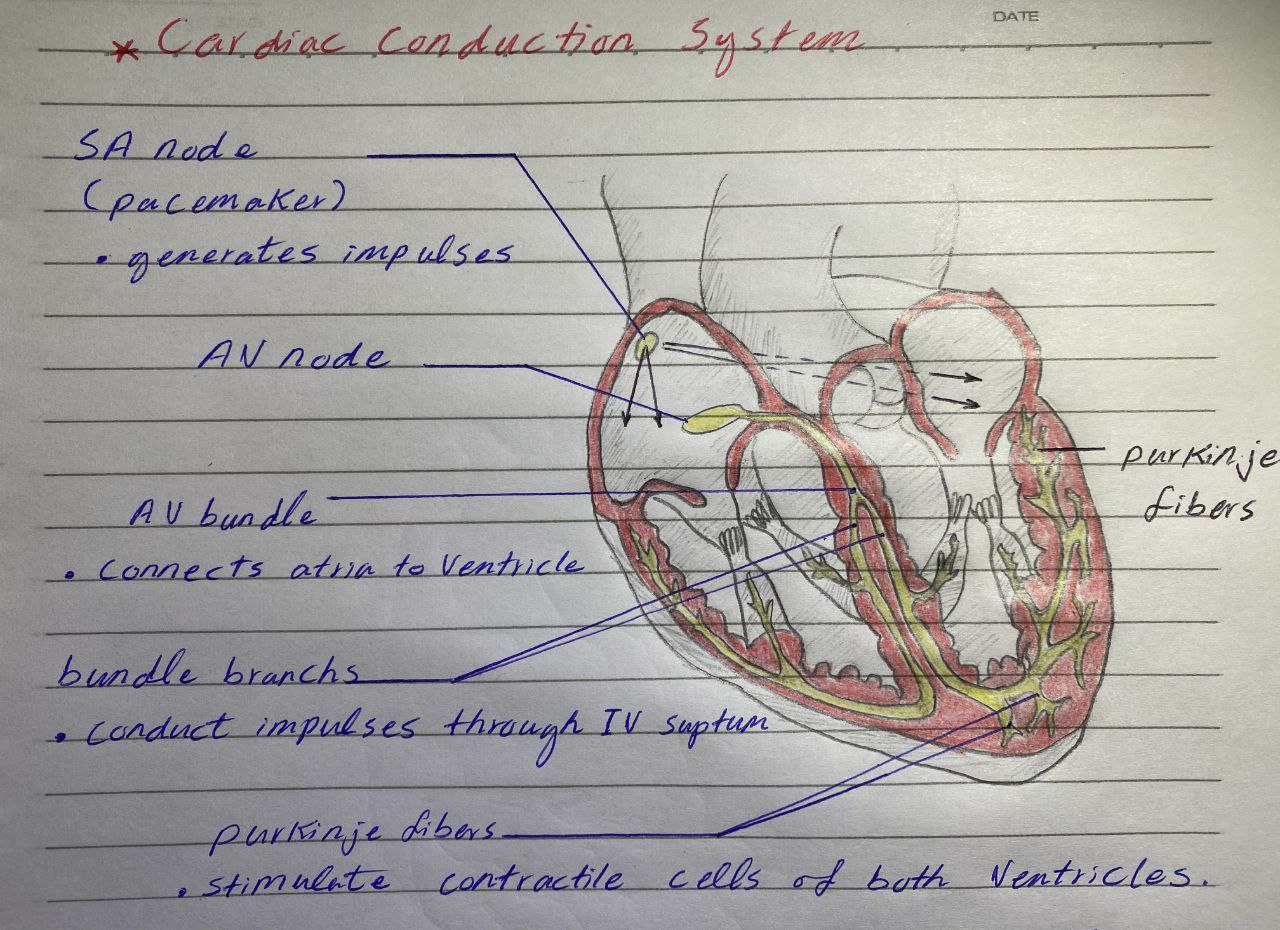 DATE
* Cardiac Conduction System
SA node
(pacemaker)
• generates impulses
AV node
purkinje
fibers
AV bundle
• connects atria to Ventricle
bundle branchs
• conduct impulses through IV suptum
purkinje fibers
• stimulate contractile cells of both Ventricles.